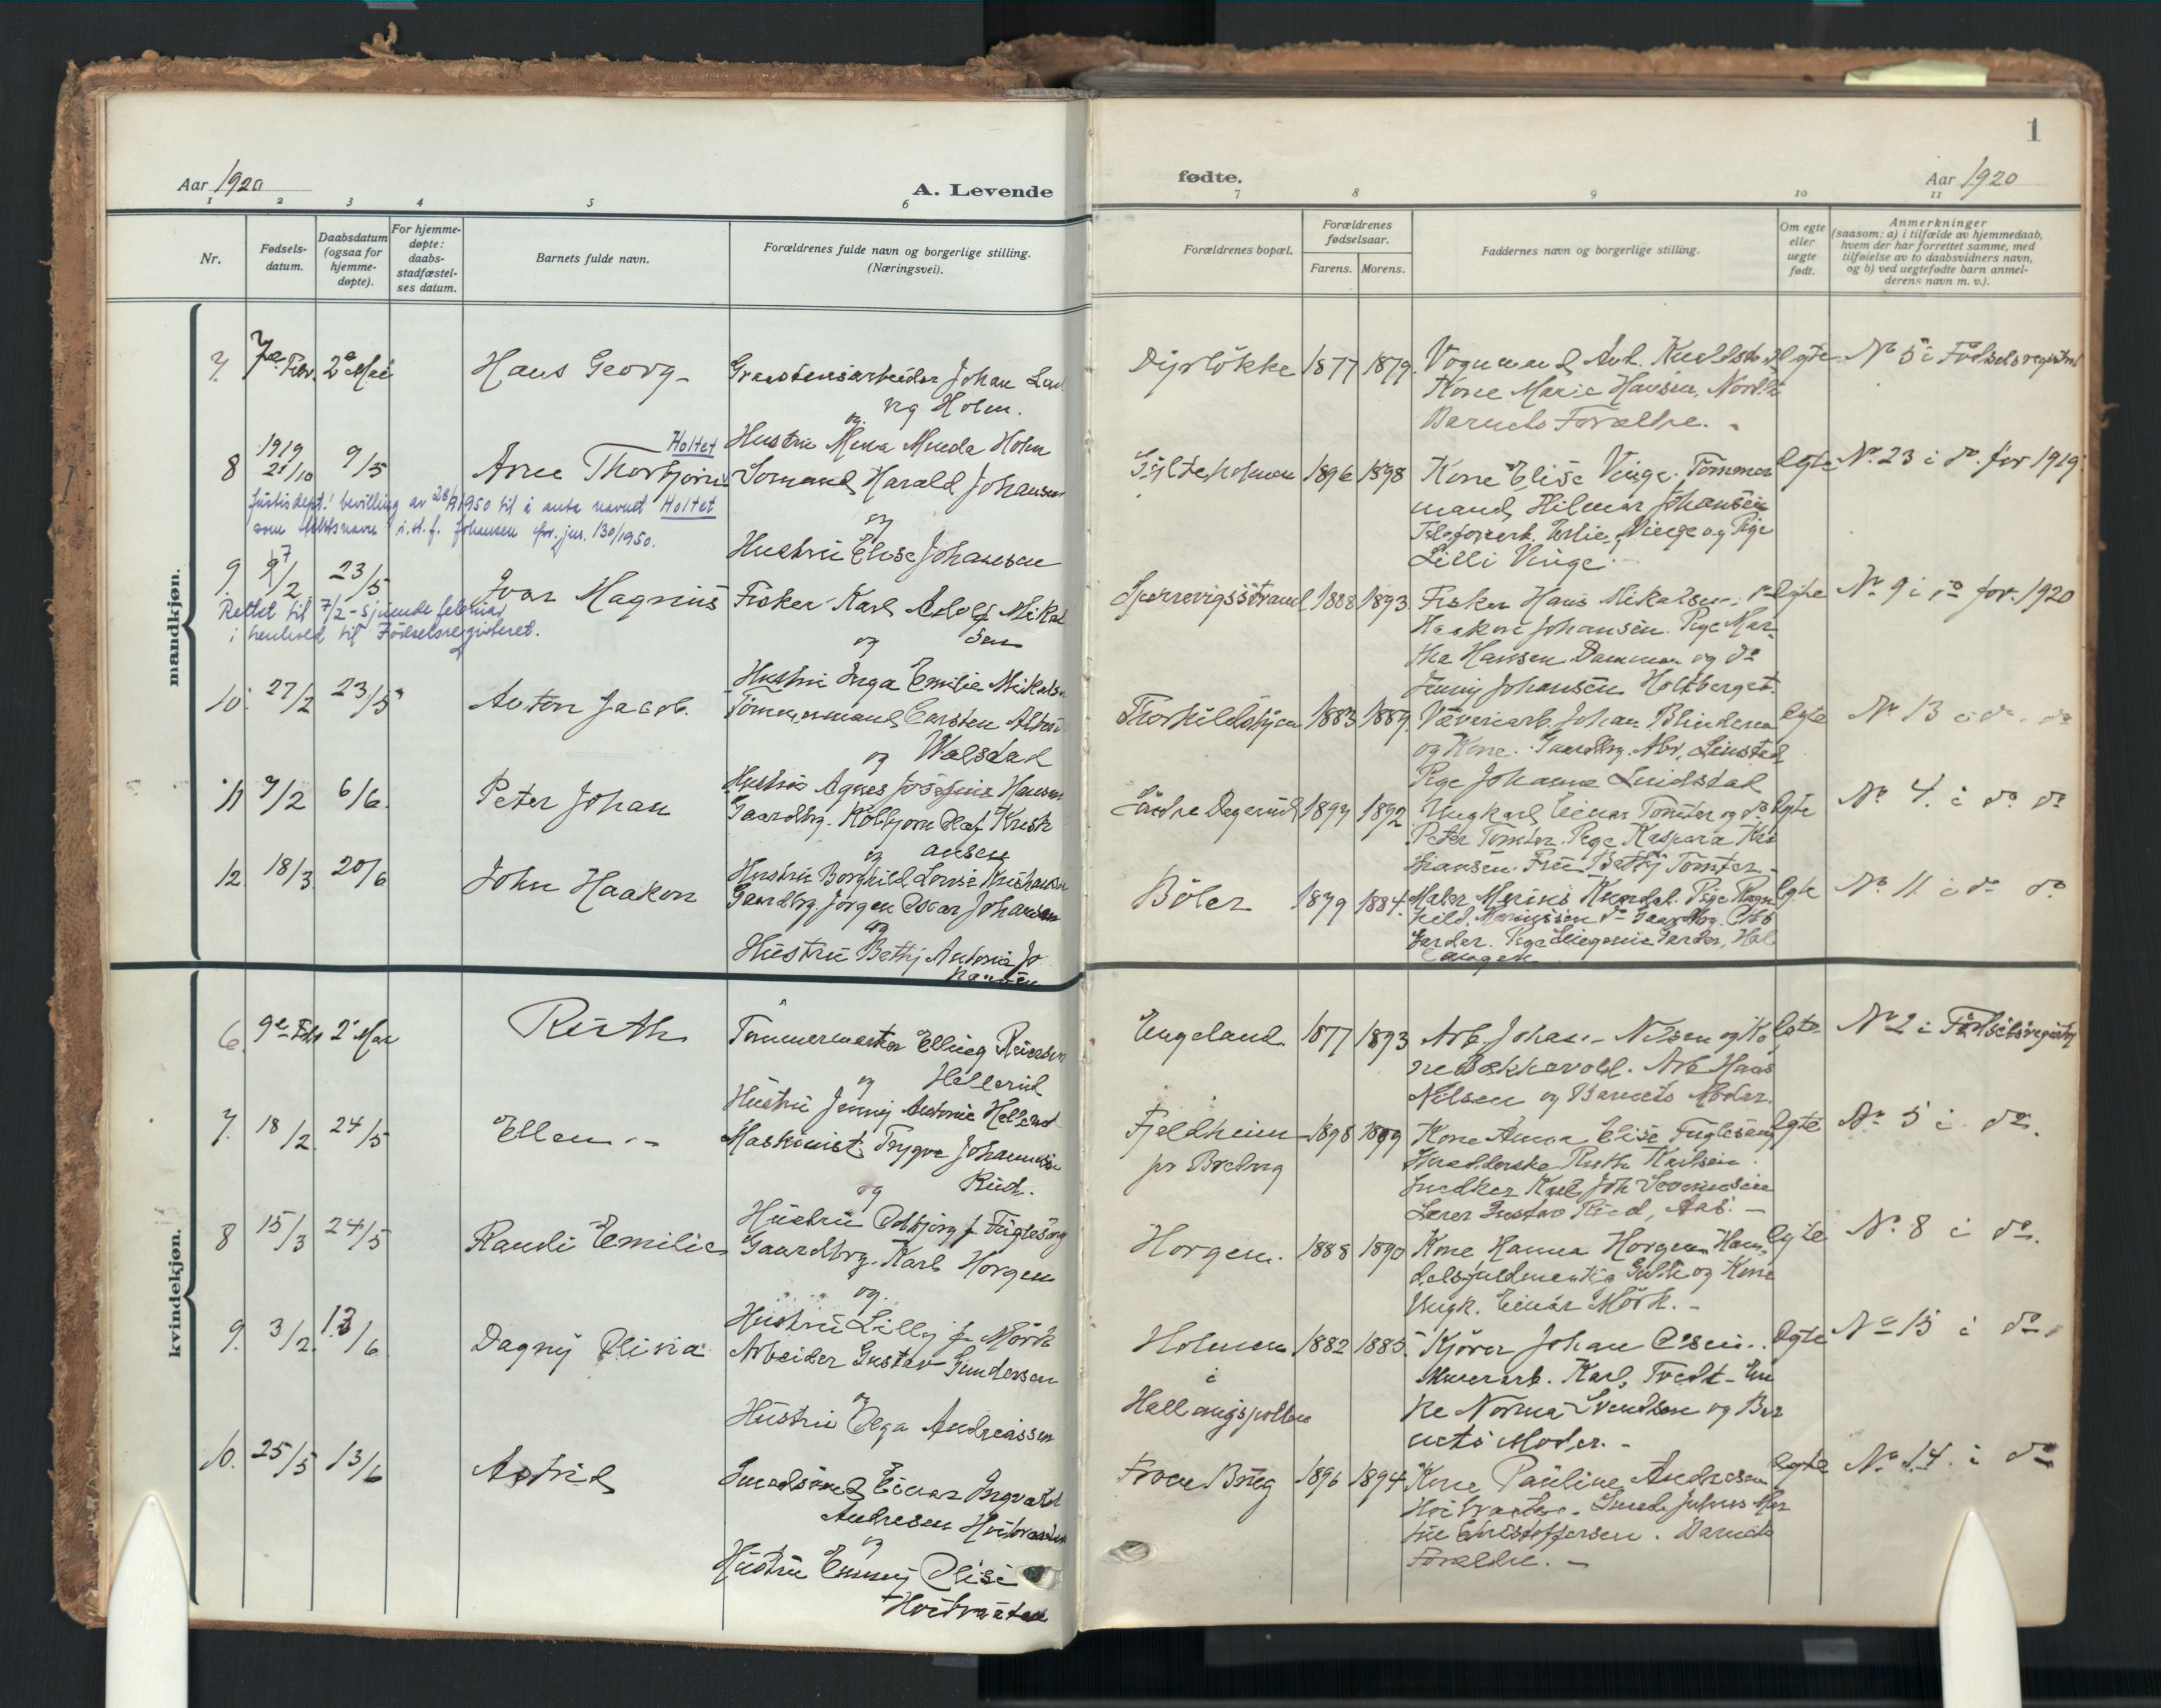 Aar 1920
A. Levende
1 2 3 4 5 6
Nr.
Fødsels-
datum.
Daabsdatum
(ogsaa for
hjemme-
døpte).
For hjemme-
døpte:
daabs-
stadfæstel-
ses datum.
Barnets fulde navn.
Forældrenes fulde navn og borgerlige stilling.
(Næringsvei).
mandkjøn.
7. 7de Febr. 2den Mai Hans Georg Johan Lud
vig Holm.
og
Hustru Mina Holm
8 1919 21/10 9/5 Arne Thorbjørn Holtet Sømand Harald Johansen
og
Hustru Elise Johansen
Justisdept! bevilling av 28/9 1950 til å anta navnet Holtet
som slektsnavn i. st. f. Johansen cfr. jnr. 130/1950.
9. 9/2 7 23/5 Ivar Magnus Fisker Karl Adolf Mikal
sen
og
Hustru Inga Emilie Mikalsen
Rettet til 7/2 - sjuende februar
i henhold til Fødselsregisteret.
10. 27/2 23/5 Anton Jacob. Tømmermand Carsten
og Walstad
Hustru Agnes Josefine Hansen
11 7/2 6/6. Peter Johan Gaardbrg. Kolbjørn Olaf Kristi
og ansen
Hustru Borghild Louise Kristiansen
12. 18/3 20/6 John Haakon Gaardbrg. Jørgen Oscar Johansen
og
Hustru Bethy Antonie Jo
hansen
kvindekjøn.
6. 9de Febr 2. Mai Ruth Tømmermester Elling Reiersen
og Hellerud
Hustru Jenny Antonie Hellerud
7. 18/2. 24/5 Ellen Maskinist Trygve Johannesen
og Ruud.
Hustru Odbjørg f. Fuglesang
8 15/3 24/5 Randi Emilie Gaardbrg. Karl Horgen
og.
Hustru Lilly f. Mørk
9. 3/2. 13/6 Dagny Olivia Arbeider Gustav Gundersen
og
Hustru Olga Andreassen
10. 25/5 13/6 Astrid Einar Ingvald
Andresen Hvitvæsten
og
Hustru Emmy Elise
1
fødte.
Aar 1920
7 8 9 10 11
Forældrenes bopæl.
Forældrenes
fødselsaar.
Farens. Morens.
Faddernes navn og borgerlige stilling.
Om egte
eller
uegte
født.
Anmerkninger
(saasom: a) i tilfælde av hjemmedaab,
hvem der har forrettet samme, med
tilføielse av to daabsvidners navn,
og b) ved uegtefødte barn anmel-
derens navn m. v.).
Dyrløkke 1877 1879. Vognmand Ant. egte No 5 i Fødselsregistret
Kone Marie Hansen,
Barnets Forældre. -
Gylteholmen 1896 1898 Kone Elise Vinge. Tømmer egte No. 23 i do. for 1919
mand Hilmar Johansen
Vinge og Pige
Lilli Vinge.
Sperrevigsstrand 1888 1893. Fisker Hans Mikalsen. egte No 9 i do for 1920
Haakon Johansen. Pige Mar
tha Hansen Dammen og do
Jenny Johansen Holtberget.
1883 1889. Væveriarb. Johan egte No 13 i do. do
og Kone. Gaardbrg. Linstad
Pige Johanne Lindstad
Søndre Dagerud 1894 1892 Ungkarl Einar Tomter og do egte No 4. i do do
Peter Tomter. Pige Kaspara Kri
stiansen. Fru Bethy Tomter -
Bøler 1879 1884. Maler Marius Pige Ragn egte No 11 i do do
hild Gaardbrg.
Garder. Pige Garder, Hal
langen
Engeland. 1877 1893 Arb. Johan Nilsen og Ko egte No 2 i Fødselsregistret
ne Bækkevold. Arb Hans
Nilsen og Barnets Moder.
Fjeldheim 1898 1899 Kone Anna Elise Fuglesang egte No 5 i do.
pr Ruth Karlsen.
Snedker Karl Joh
Lærer Gustav Ruud, Aas. -
Horgen. 1888 1890 Kone Hanna Horgen. Han egte No. 8 i do.
og Kone
Ungk. Einar Mørk. -
Holmen 1882 1885. Kjører Johan Olsen. egte No 15 i do.
i
Hallangspollen
Murerarb. Karl Tvedt - En
ke Norma Svendsen og Bar
nets Moder. -
Brug 1896 1894 Kone Pauline Andresen egte No 14. i do
Smed
Christoffersen. Barnets
Forældre. -